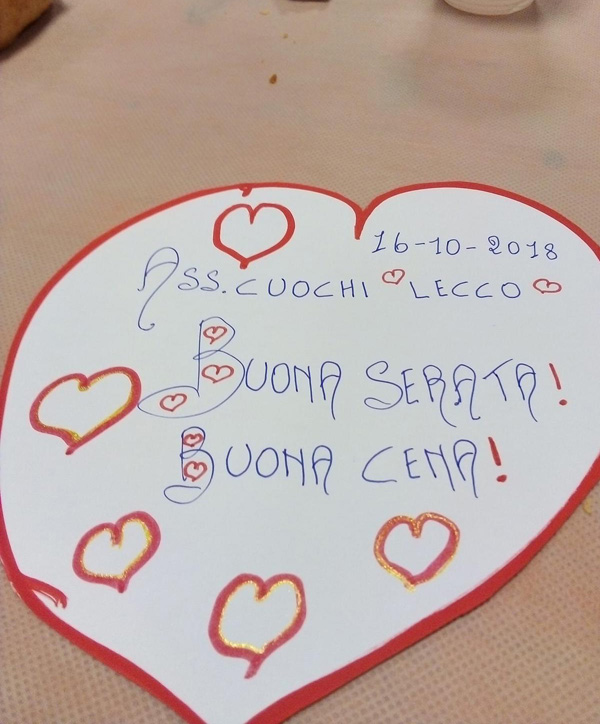 16-10-2018
ASS. CUOCHI LECCO
BUONA SERATA!
BUONA CENA!